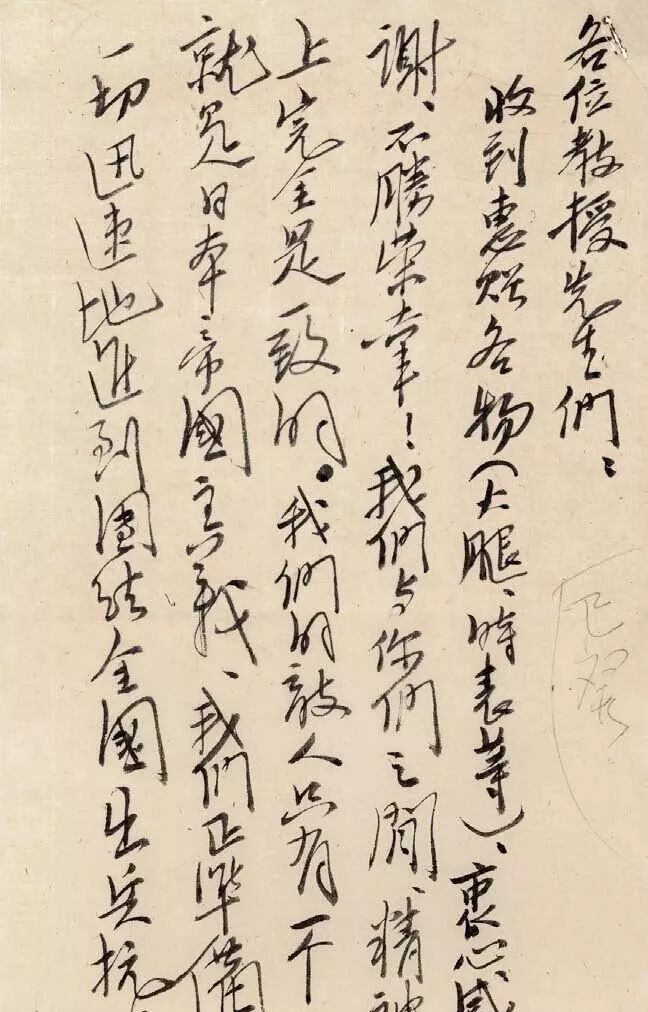 各位教授先生們：
收到惠贈各物（火腿、時表等）、衷心感
謝、不勝榮幸！我們与你們之間、精神
上完全是一致的。我們的敌人只有一个
就是日本帝國主義、我們正準備
一切迅速地進到團結全國出兵抗
已翠